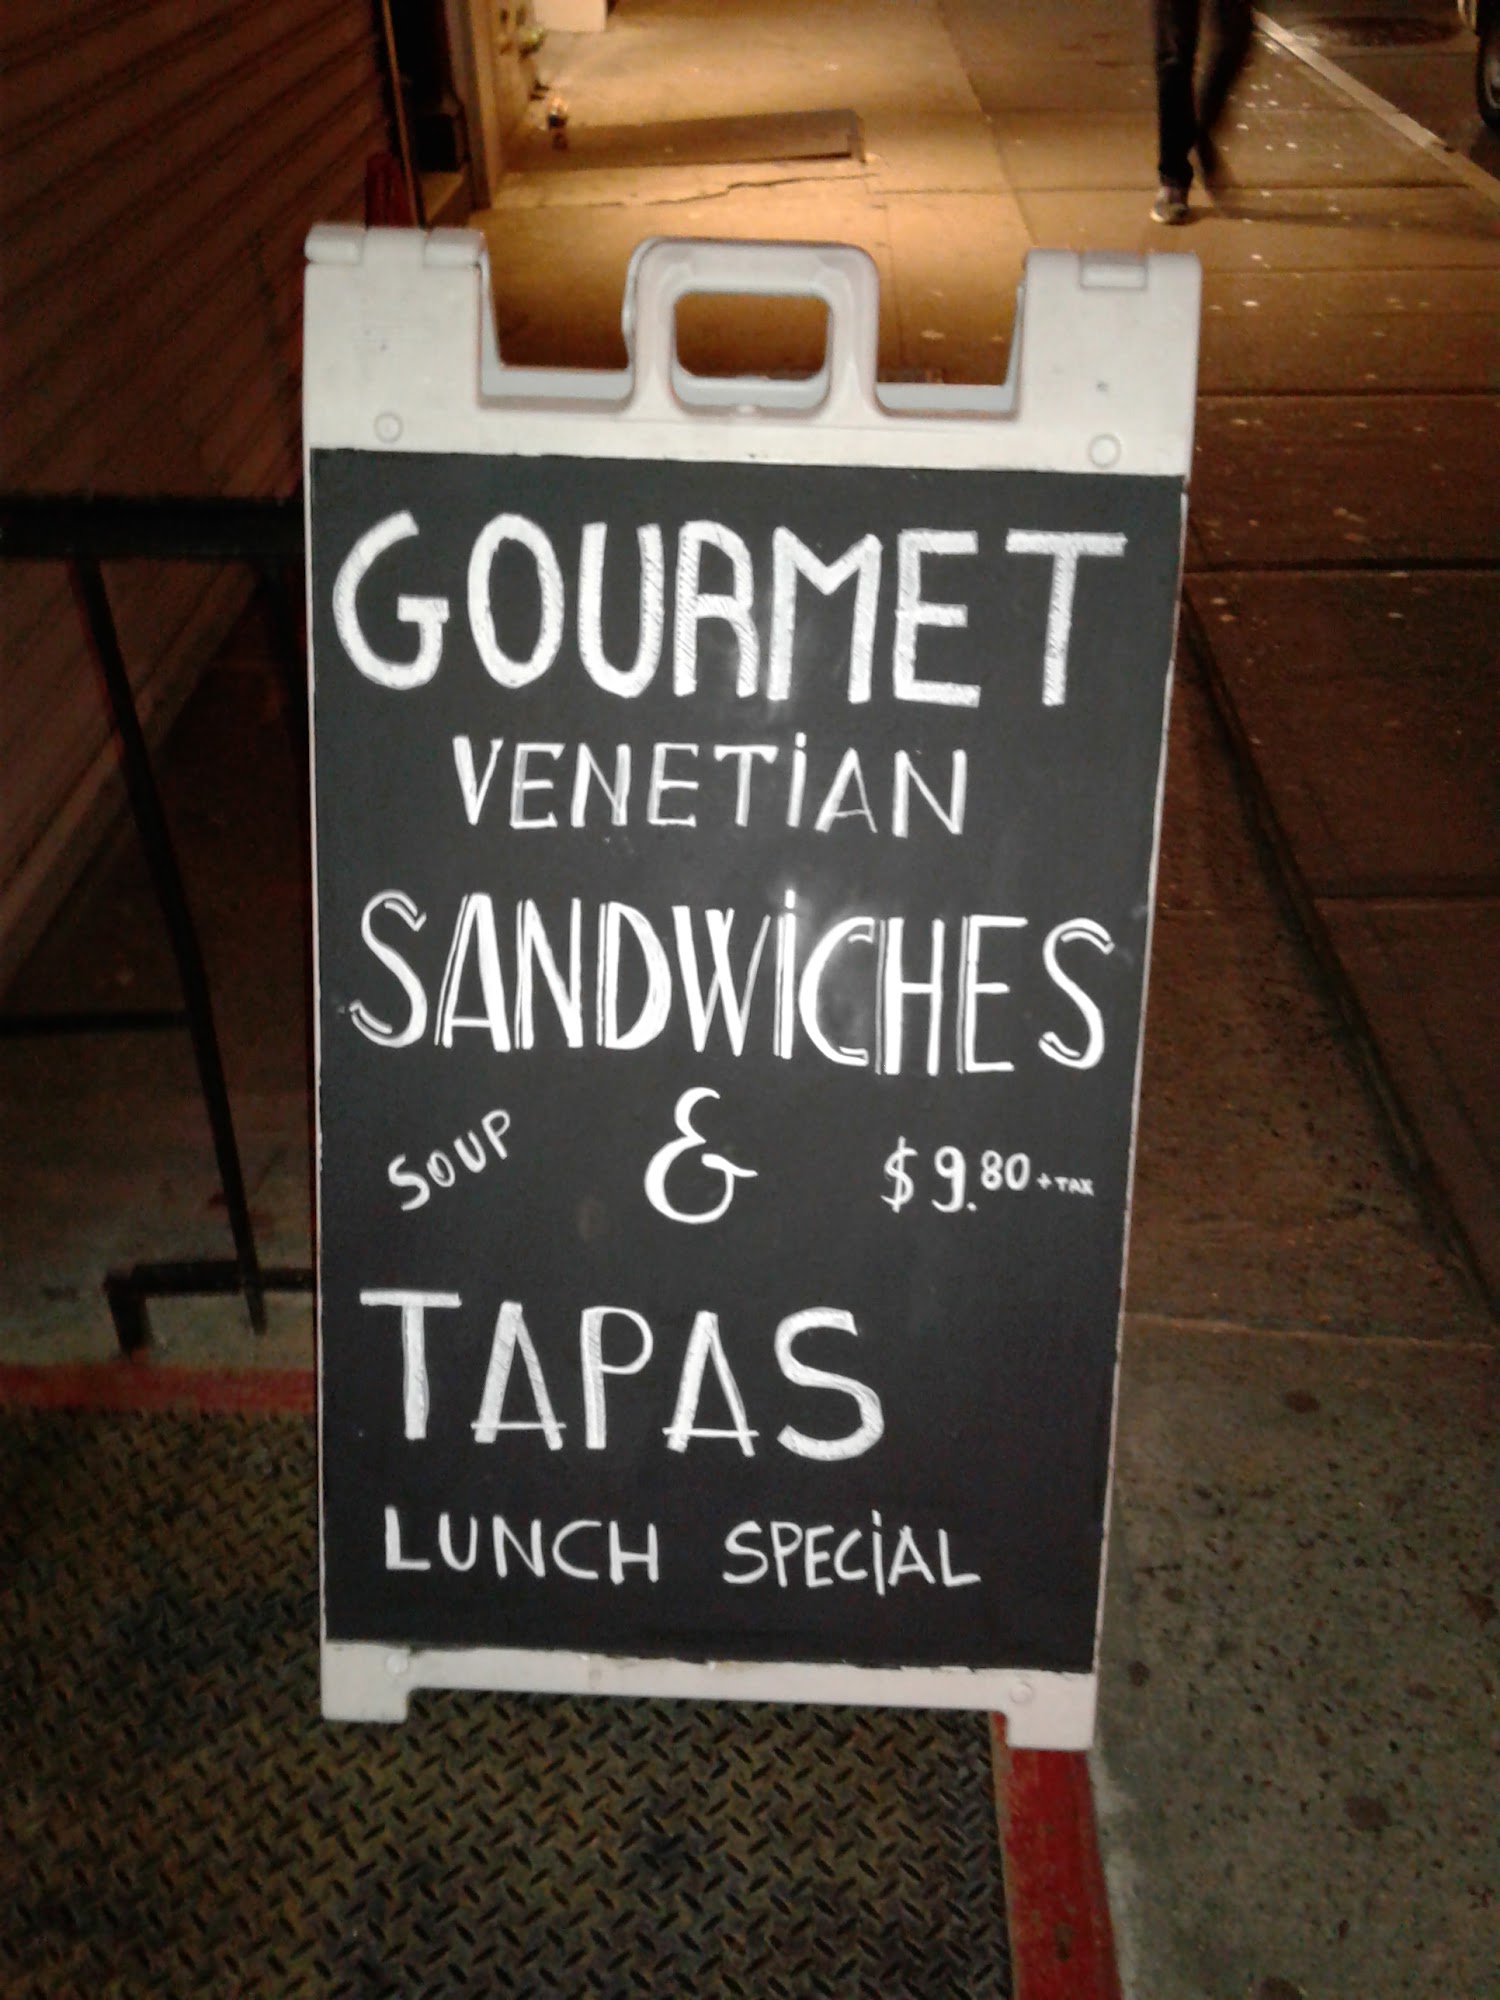 GOURMET
VENETiAN
SANDWiCHES
SOUP & $9.80 + TAX
TAPAS
LUNCH SPECiAL